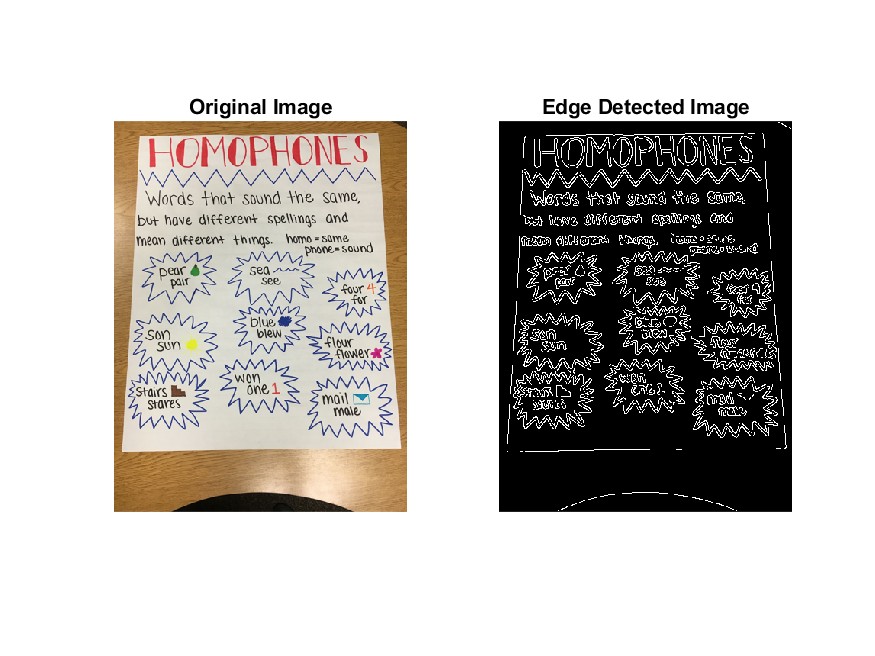 Original Image
HOMOPHONES
Words that sound the same,
but have different spellings and
mean different things. homo = same
phone = sound
pear
pair
sea
see
four 4
for
son
sun
blue
blew
flour
flower
stairs
stares
won
one 1
mail
male
Edge Detected Image
HOMOPHONES
Words that sound the same,
but have different spellings and
mean different things. homo = same
phone = sound
pear
pair
sea
see
four 4
for
son
sun
blue
blew
flour
flower
stairs
stares
won
one 1
mail
male